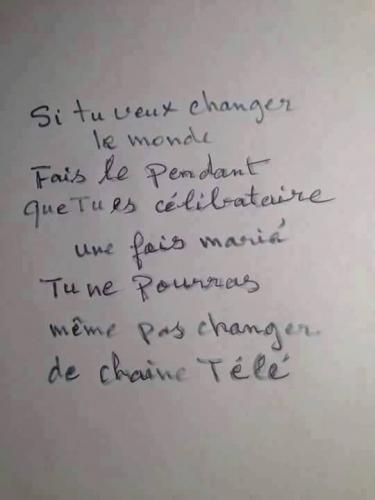 Si tu veux changer
le monde
Fais le pendant
que Tu es célibataire
une fois marié
Tu ne pourras
même pas changer
de chaine Télé